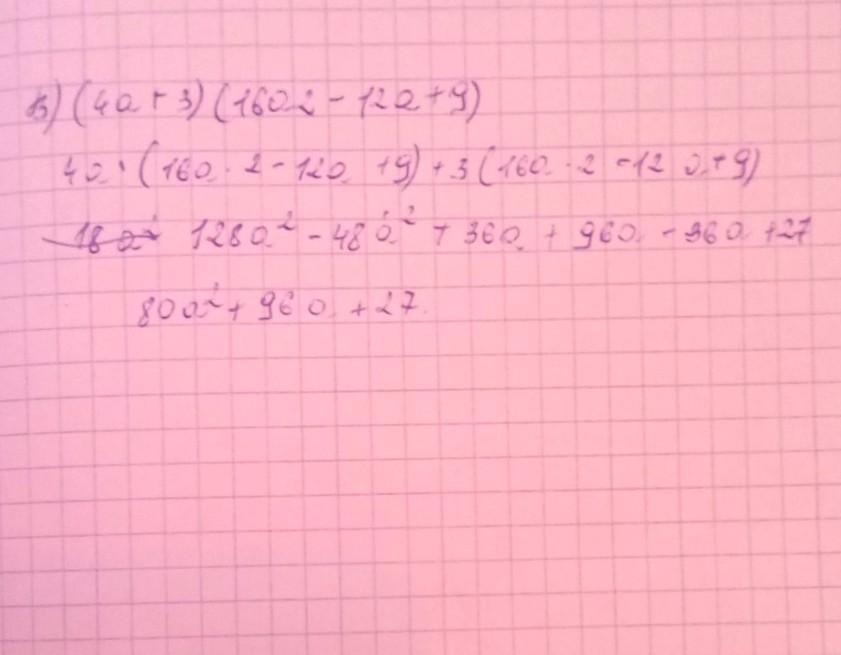 в) (4a + 3) (16a2 - 12a + 9)
4a · (16a · 2 - 12a + 9) + 3 (16a · 2 - 12a + 9)
18a² 128a² - 48a² + 36a + 96a - 36a + 27
80a² + 96a + 27.